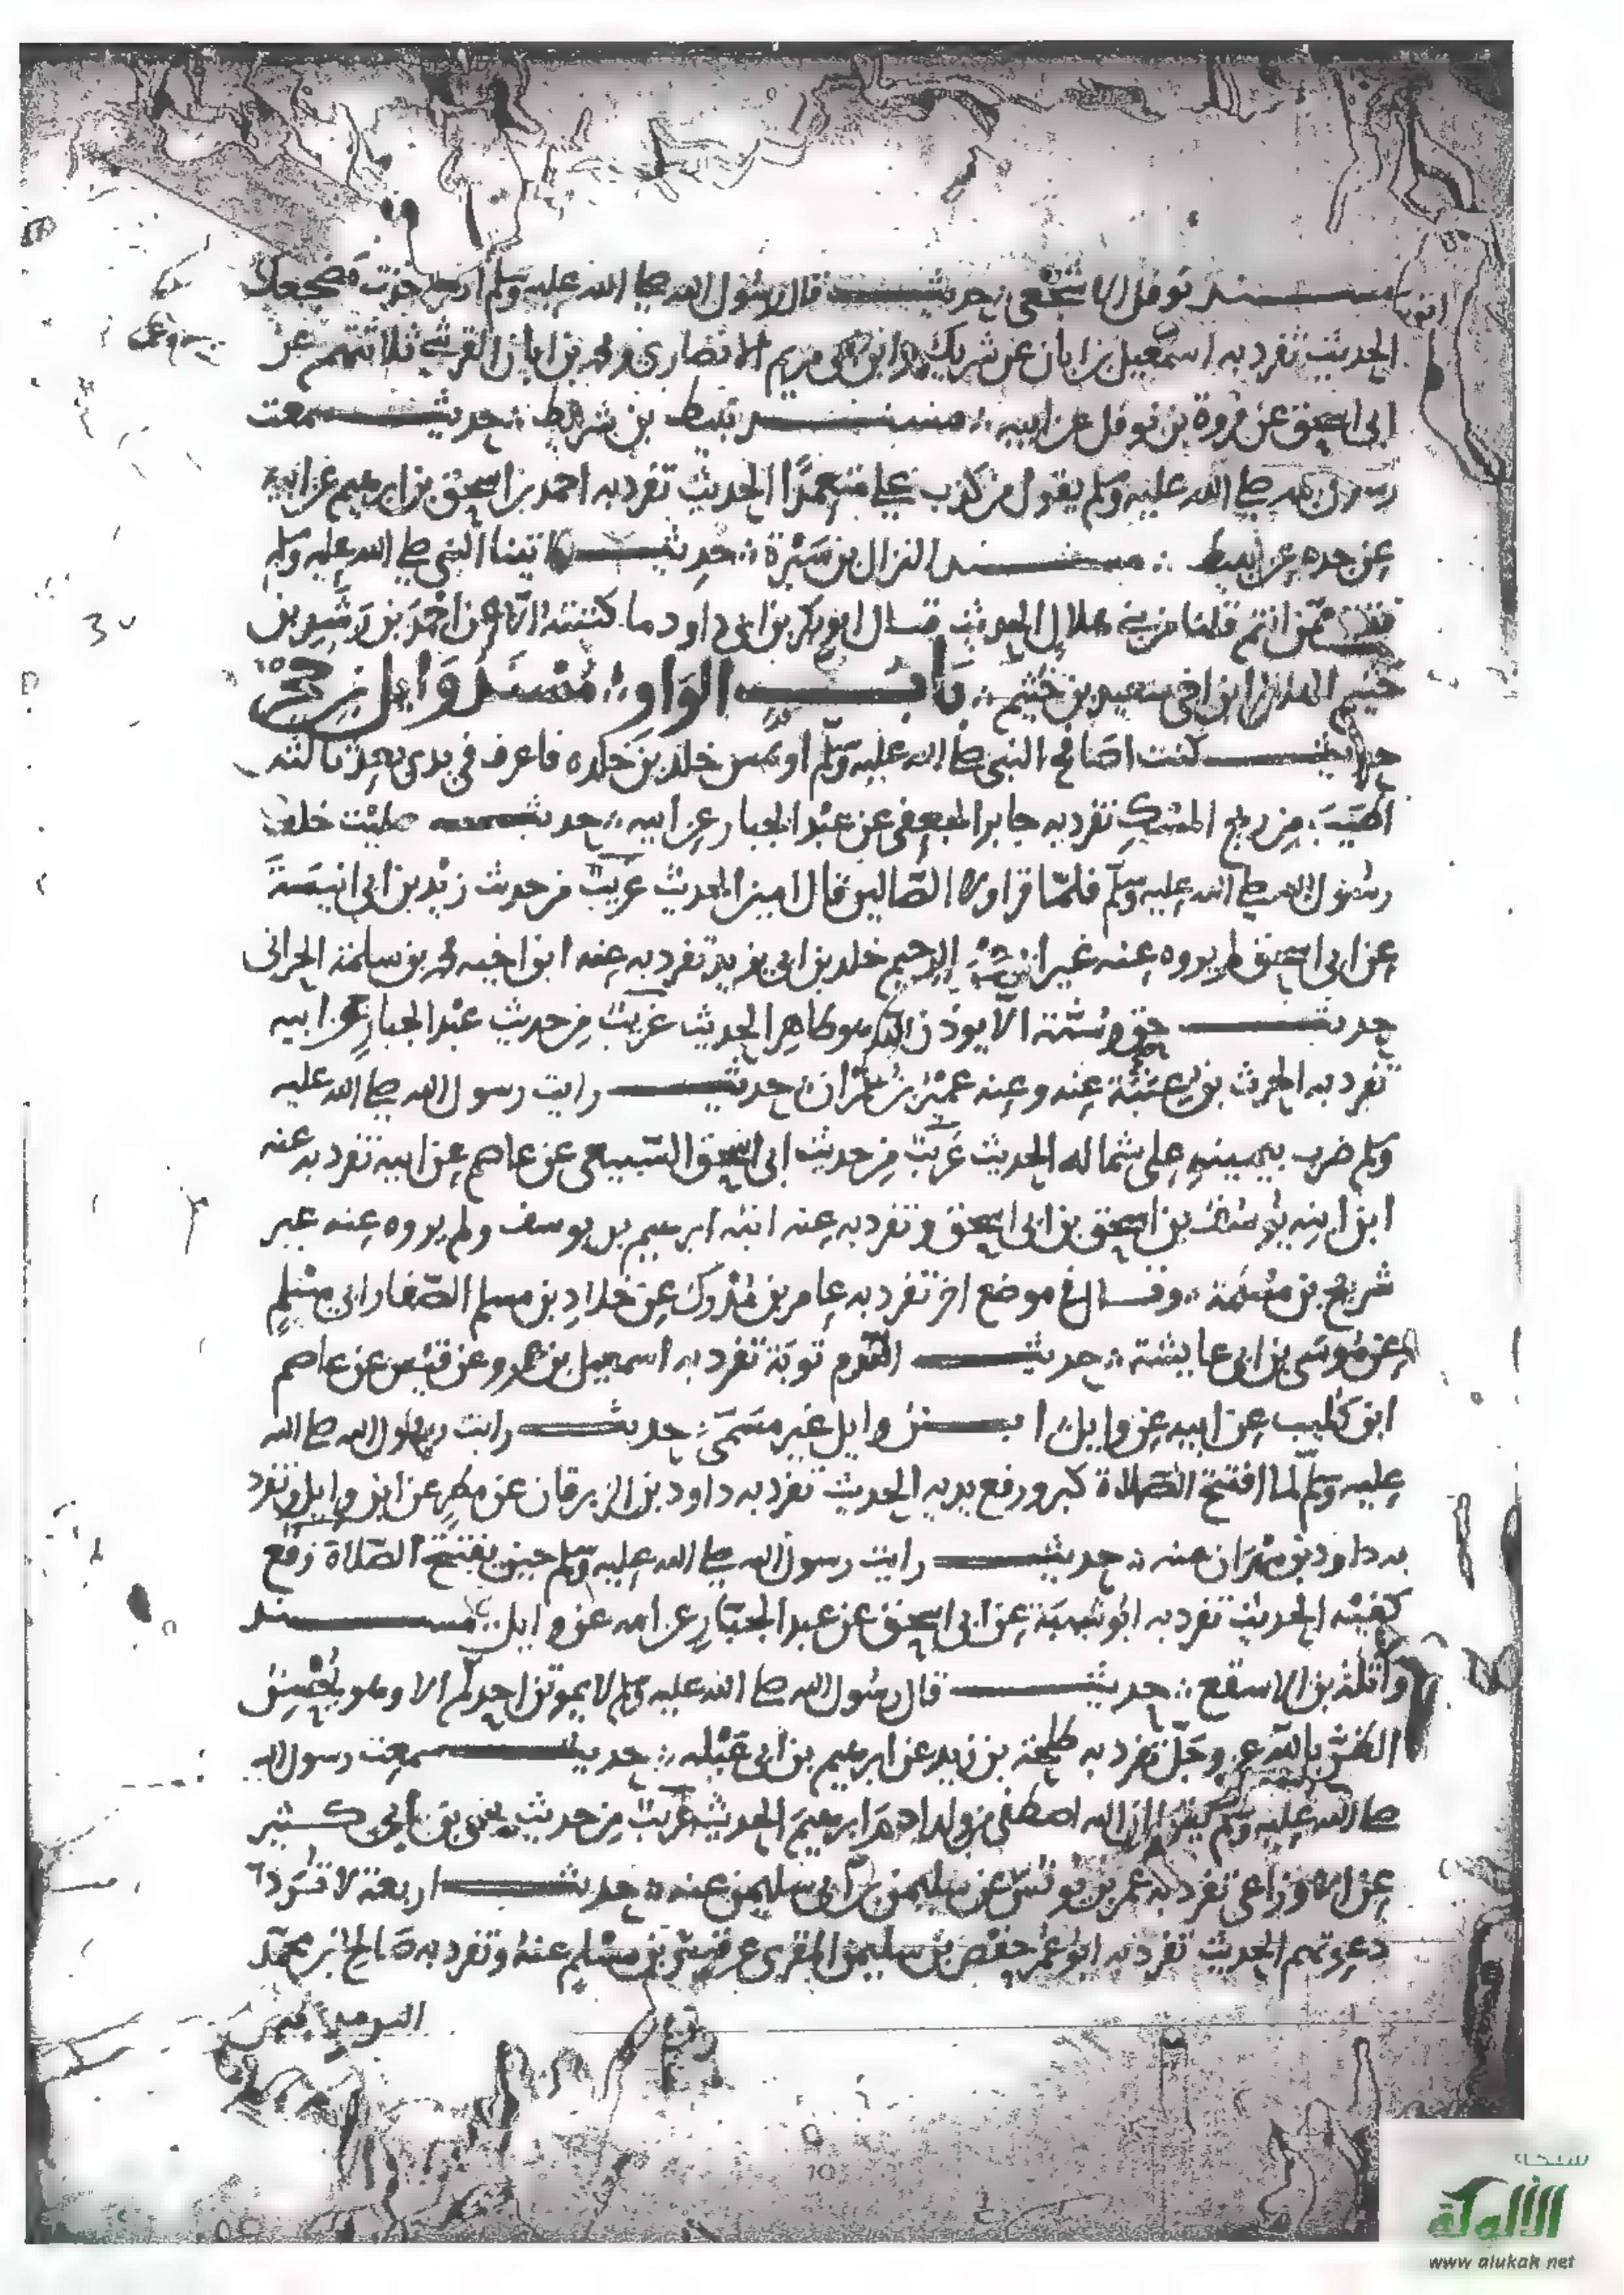 مسند نوفل الاشجعي حديث قال رسول الله صلى الله عليه وسلم اذا اخذت مضجعك
الحديث تفرد به اسمعيل بن ابان عن شريك وابن ابي مريم الانصاري ومحمد بن ابان القرشي ثلاثتهم عن
ابي اسحق عن فروة بن نوفل عن ابيه مسند نبيط بن شريط حديث سمعت
رسول الله صلى الله عليه وسلم يقول من كذب علي متعمدا الحديث تفرد به احمد بن اسحق بن ابرهيم عن ابيه
عن جده عن نبيط مسند النزال بن سبرة حديث اتينا النبي صلى الله عليه وسلم
فقال ممن انتم قلنا من بني هلال الحديث قال ابو بكر بن ابي داود ما كتبته الا عن احمد بن رشد بن
خثيم الهلالي ابن اخي سعيد بن خثيم باب الواو مسند وايل بن حجر
حديث كنت اصافح النبي صلى الله عليه وسلم او يمس جلدي جلده فاعرف في يدي بعد ثالثه
اطيب من ريح المسك تفرد به جابر الجعفي عن عبد الجبار عن ابيه حديث صليت خلف
رسول الله صلى الله عليه وسلم فلما قرا ولا الضالين قال امين الحديث غريب من حديث زيد بن ابي انيسة
عن ابي اسحق لم يروه عنه غير ابي عبد الرحيم خلد بن ابي يزيد تفرد به عنه ابن اخيه محمد بن سلمة الحراني
حديث حق وسنة الا يوذن الا وهو طاهر الحديث غريب من حديث عبد الجبار عن ابيه
تفرد به الحرث بن عتبة عنه وعنه عمير بن عمران حديث رايت رسول الله صلى الله عليه
وسلم ضرب بيمينه على شماله الحديث غريب من حديث ابي اسحق السبيعي عن عاصم عن ابيه تفرد به عنه
ابن ابنه يوسف بن اسحق بن ابي اسحق وتفرد به عنه ابنه ابرهيم بن يوسف ولم يروه عنه غير
شريح بن مسلمة وقال في موضع اخر تفرد به عامر بن مدرك عن خلاد بن مسلم الصفار ابي مسلم
عن موسى بن ابي عايشة حديث توبة تفرد به اسمعيل بن عمرو عن قيس عن عاصم
ابن كليب عن ابيه عن وايل ابن وايل غير مسمى حديث رايت رسول الله صلى الله
عليه وسلم لما افتتح الصلاة كبر ورفع يديه الحديث تفرد به داود بن الزبرقان عن مطر عن ابن وايل وتفرد
به داود بن مهران عنه حديث رايت رسول الله صلى الله عليه وسلم حين يفتتح الصلاة رفع
كفيه الحديث تفرد به ابو شيبة عن ابي اسحق عن عبد الجبار عن امه عن وايل مسند
واثلة بن الاسقع حديث قال رسول الله صلى الله عليه وسلم لا يموتن احدكم الا وهو يحسن
الظن بالله عز وجل تفرد به طلحة بن زيد عن ابرهيم بن ابي عبلة حديث سمعت رسول الله
صلى الله عليه وسلم يقول ان الله اصطفى من ولد ادم ابرهيم الحديث غريب من حديث يحيى بن ابي كثير
عن الاوزاعي تفرد به عمر بن يونس عن سليمن بن ابي سليمن عنه حديث اربعة لا ترد
دعوتهم الحديث تفرد به ابو عمر حفص بن سليمن المقري عن قيس بن مسلم عنه وتفرد به صالح بن محمد
شبكة
الألوكة
www alukah net